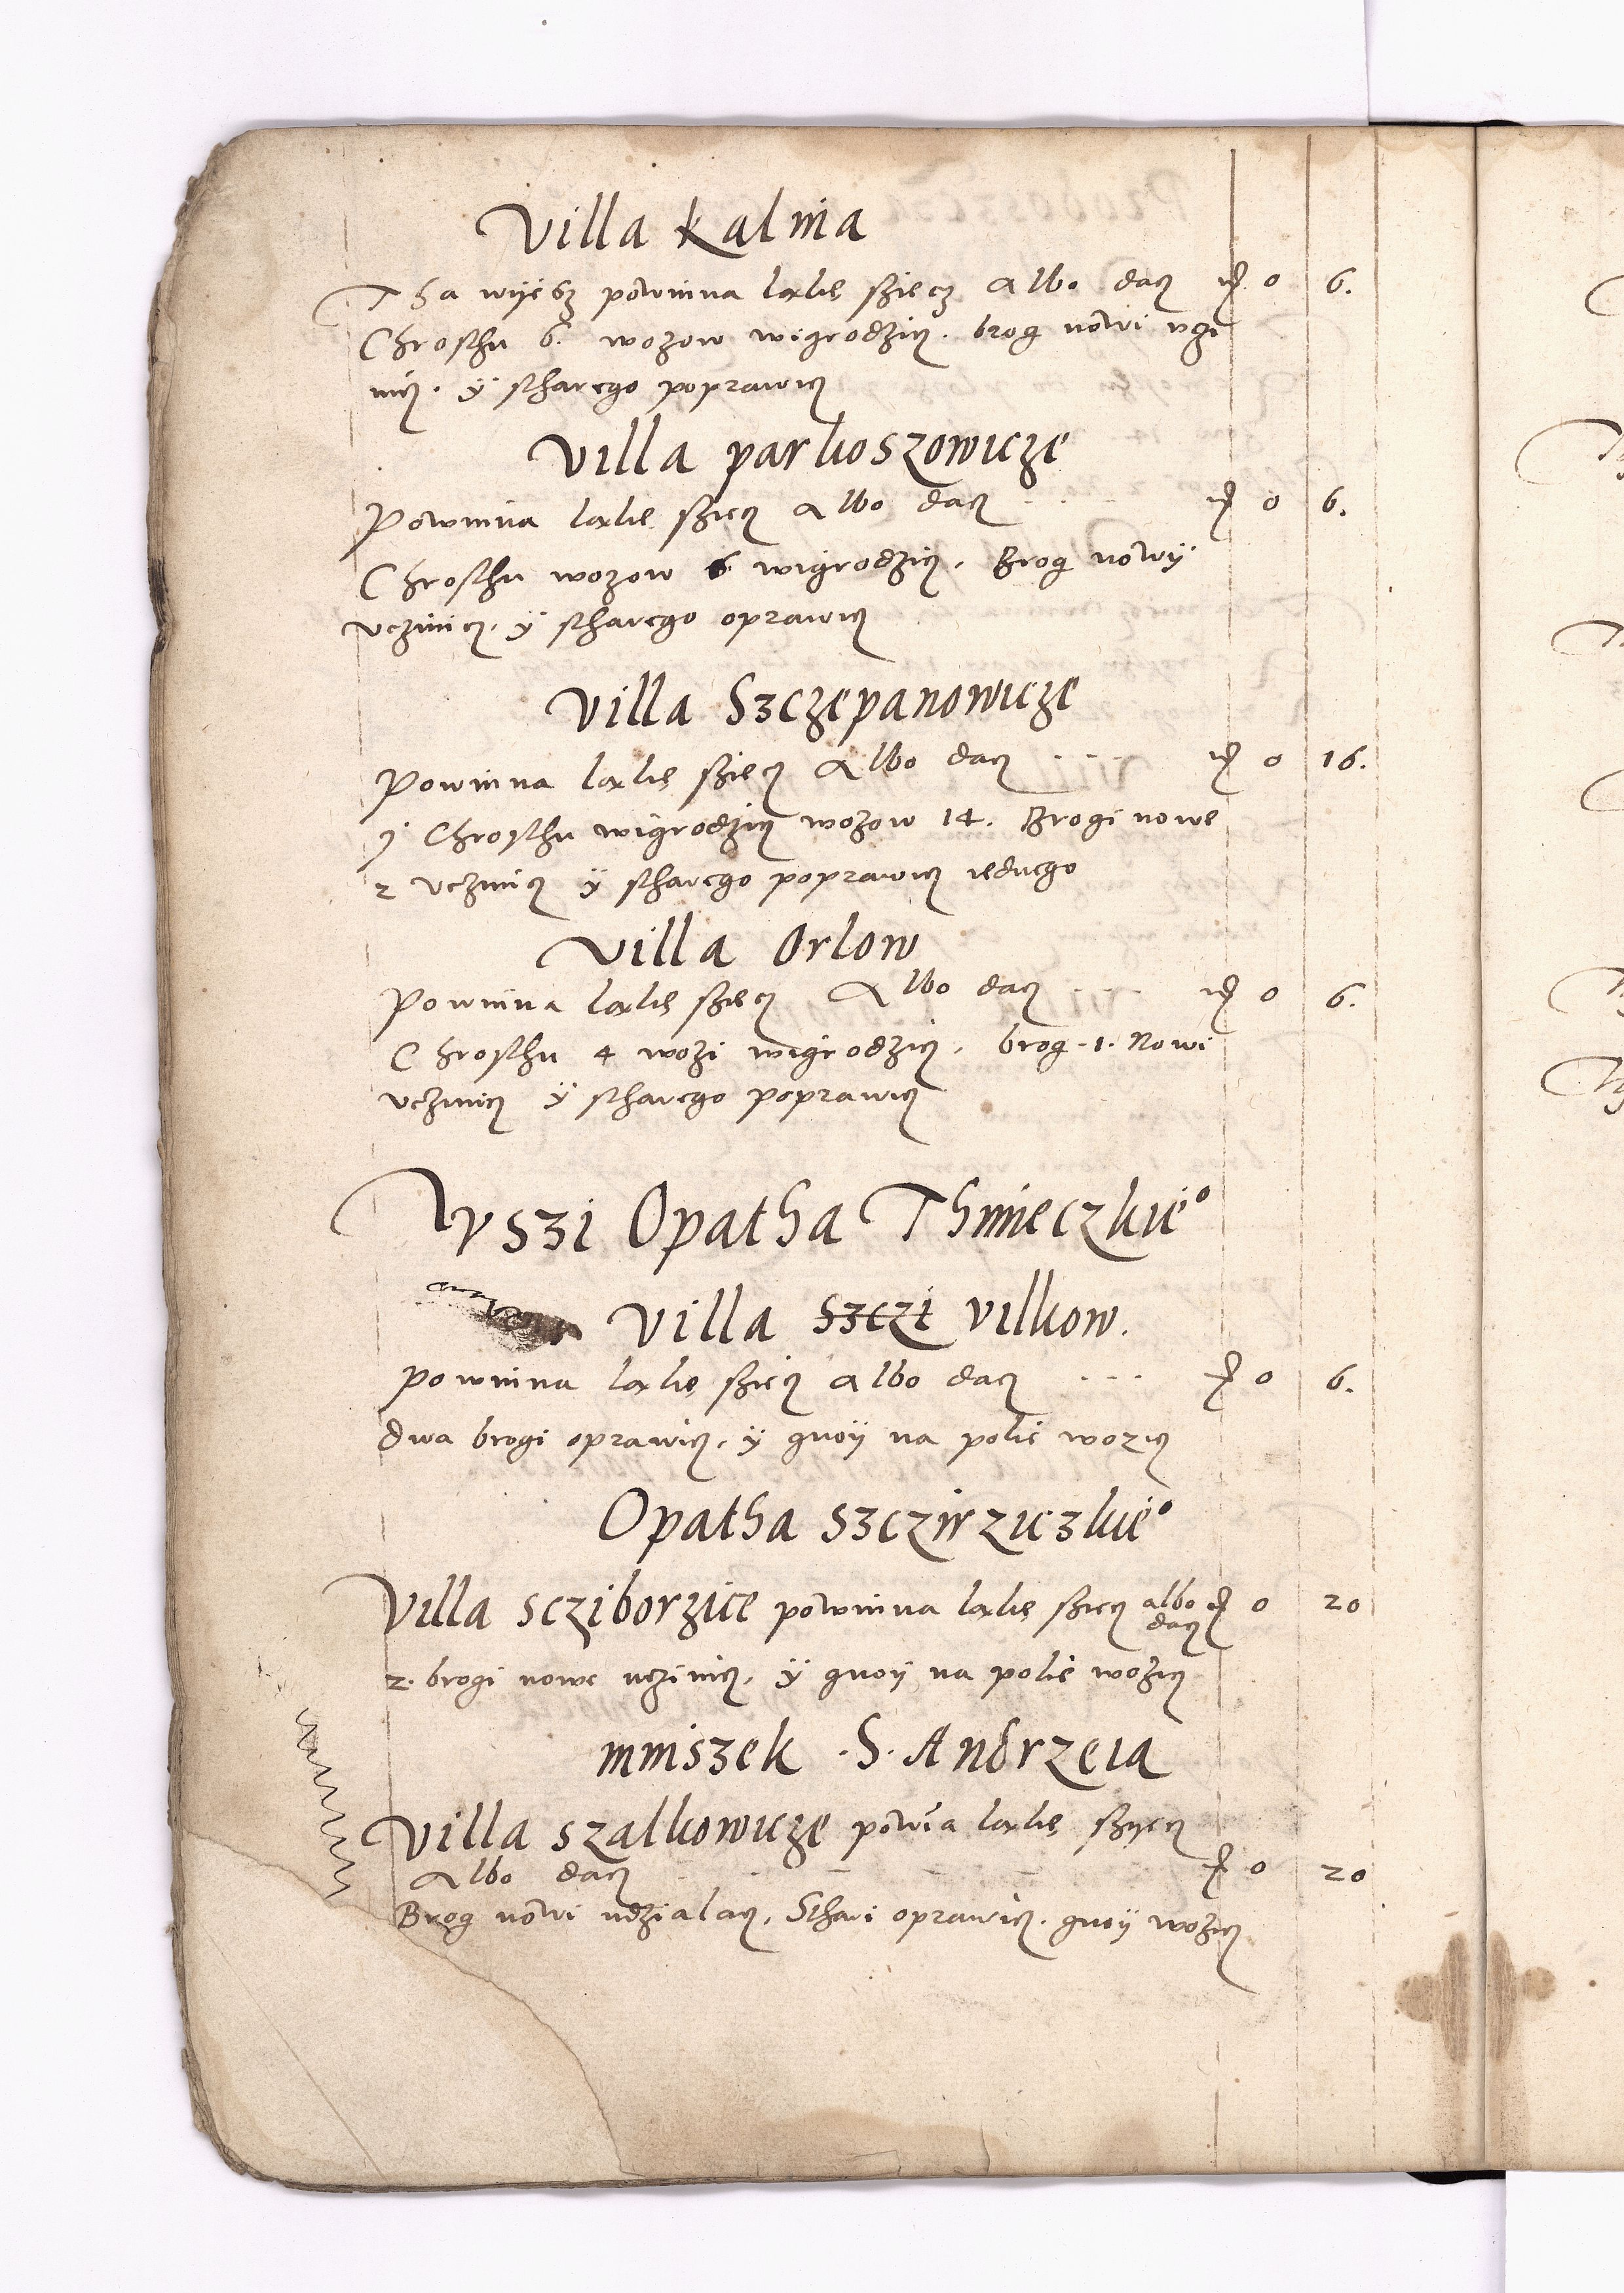 Villa kalnia
Tha wyesz powinna lakię szięcz Albo dacz 0 6.
Chrosthu 6. wozow wigrodzicz. brog nowi vczi
nicz. ÿ stharego poprawicz
Villa parkoszowicze
Powinna lakię szięcz Albo dacz . . . 0 6.
Chrosthu wozow 6 wigrodzicz, Brog nowÿ
vczinicz, ÿ stharego oprawicz
Villa Szczepanowicze
Powinna lakię szięcz Albo dacz . . . 0 16.
ÿ Chrosthu wigrodzicz wozow 14. Brogi nowe
2 vczinicz ÿ stharego poprawicz iednego
Villa Orlow
Powinna lakię szięcz Albo dacz . . . 0 6.
Chrosthu 4 wozi wigrodzicz, brog .1. Nowi
vczinicz ÿ stharego poprawicz
Wszi Opatha Thinieczkie°
Villa Szczi vilkow.
powinna lakię szięcz albo dacz . . . 0 6.
dwa brogi oprawicz, ÿ gnoÿ na polie wozicz
Opatha Szczirziczkie°
Villa scziborzice powinna lakię szięcz albo dacz 0 20
2. brogi nowe vczinicz, ÿ gnoÿ na polie wozicz
mniszek .S. Andrzeia
Villa szalkowicze powi͠a lakię szyęcz
Albo dacz 0 20
Brog nowi udzialacz, Sthari oprawicz. gnoÿ wozicz